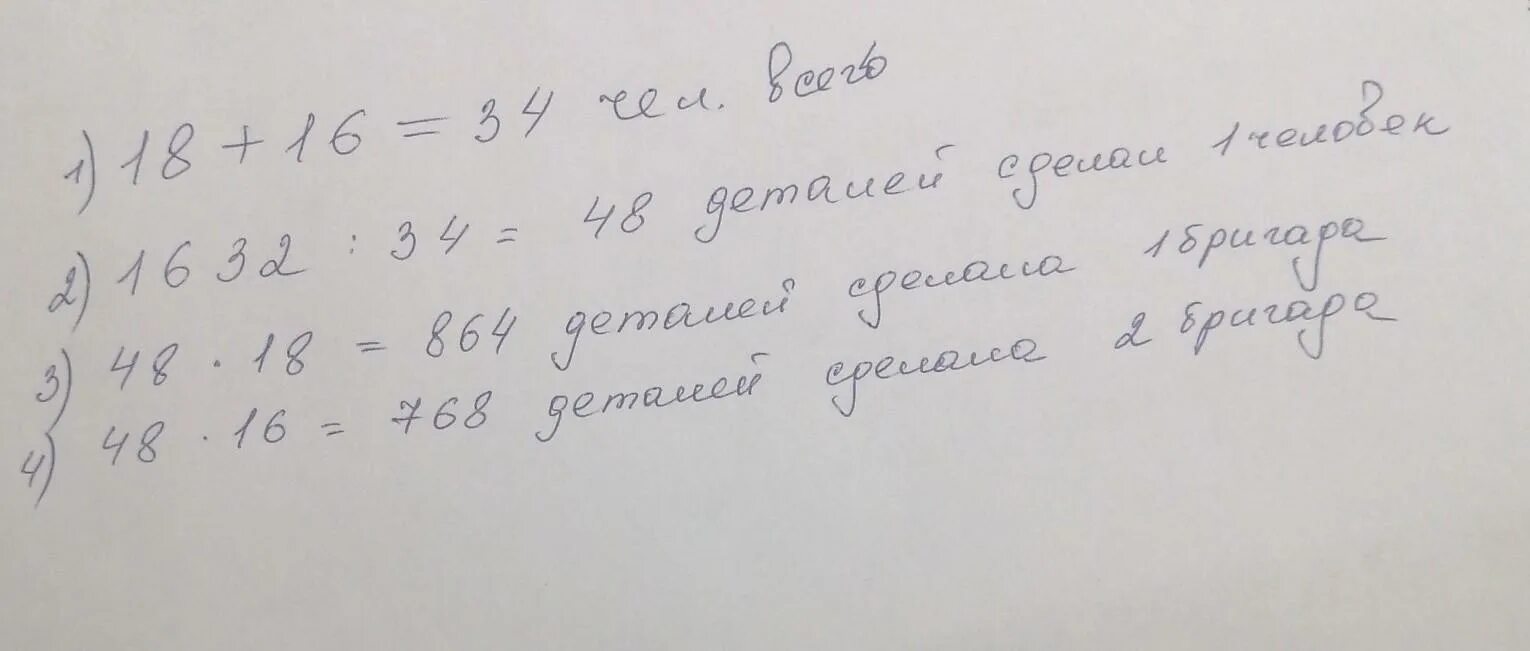 1) 18 + 16 = 34 чел. всего
2) 1632 : 34 = 48 деталей сделал 1 человек
3) 48 · 18 = 864 деталей сделала 1 бригада
4) 48 · 16 = 768 деталей сделала 2 бригада